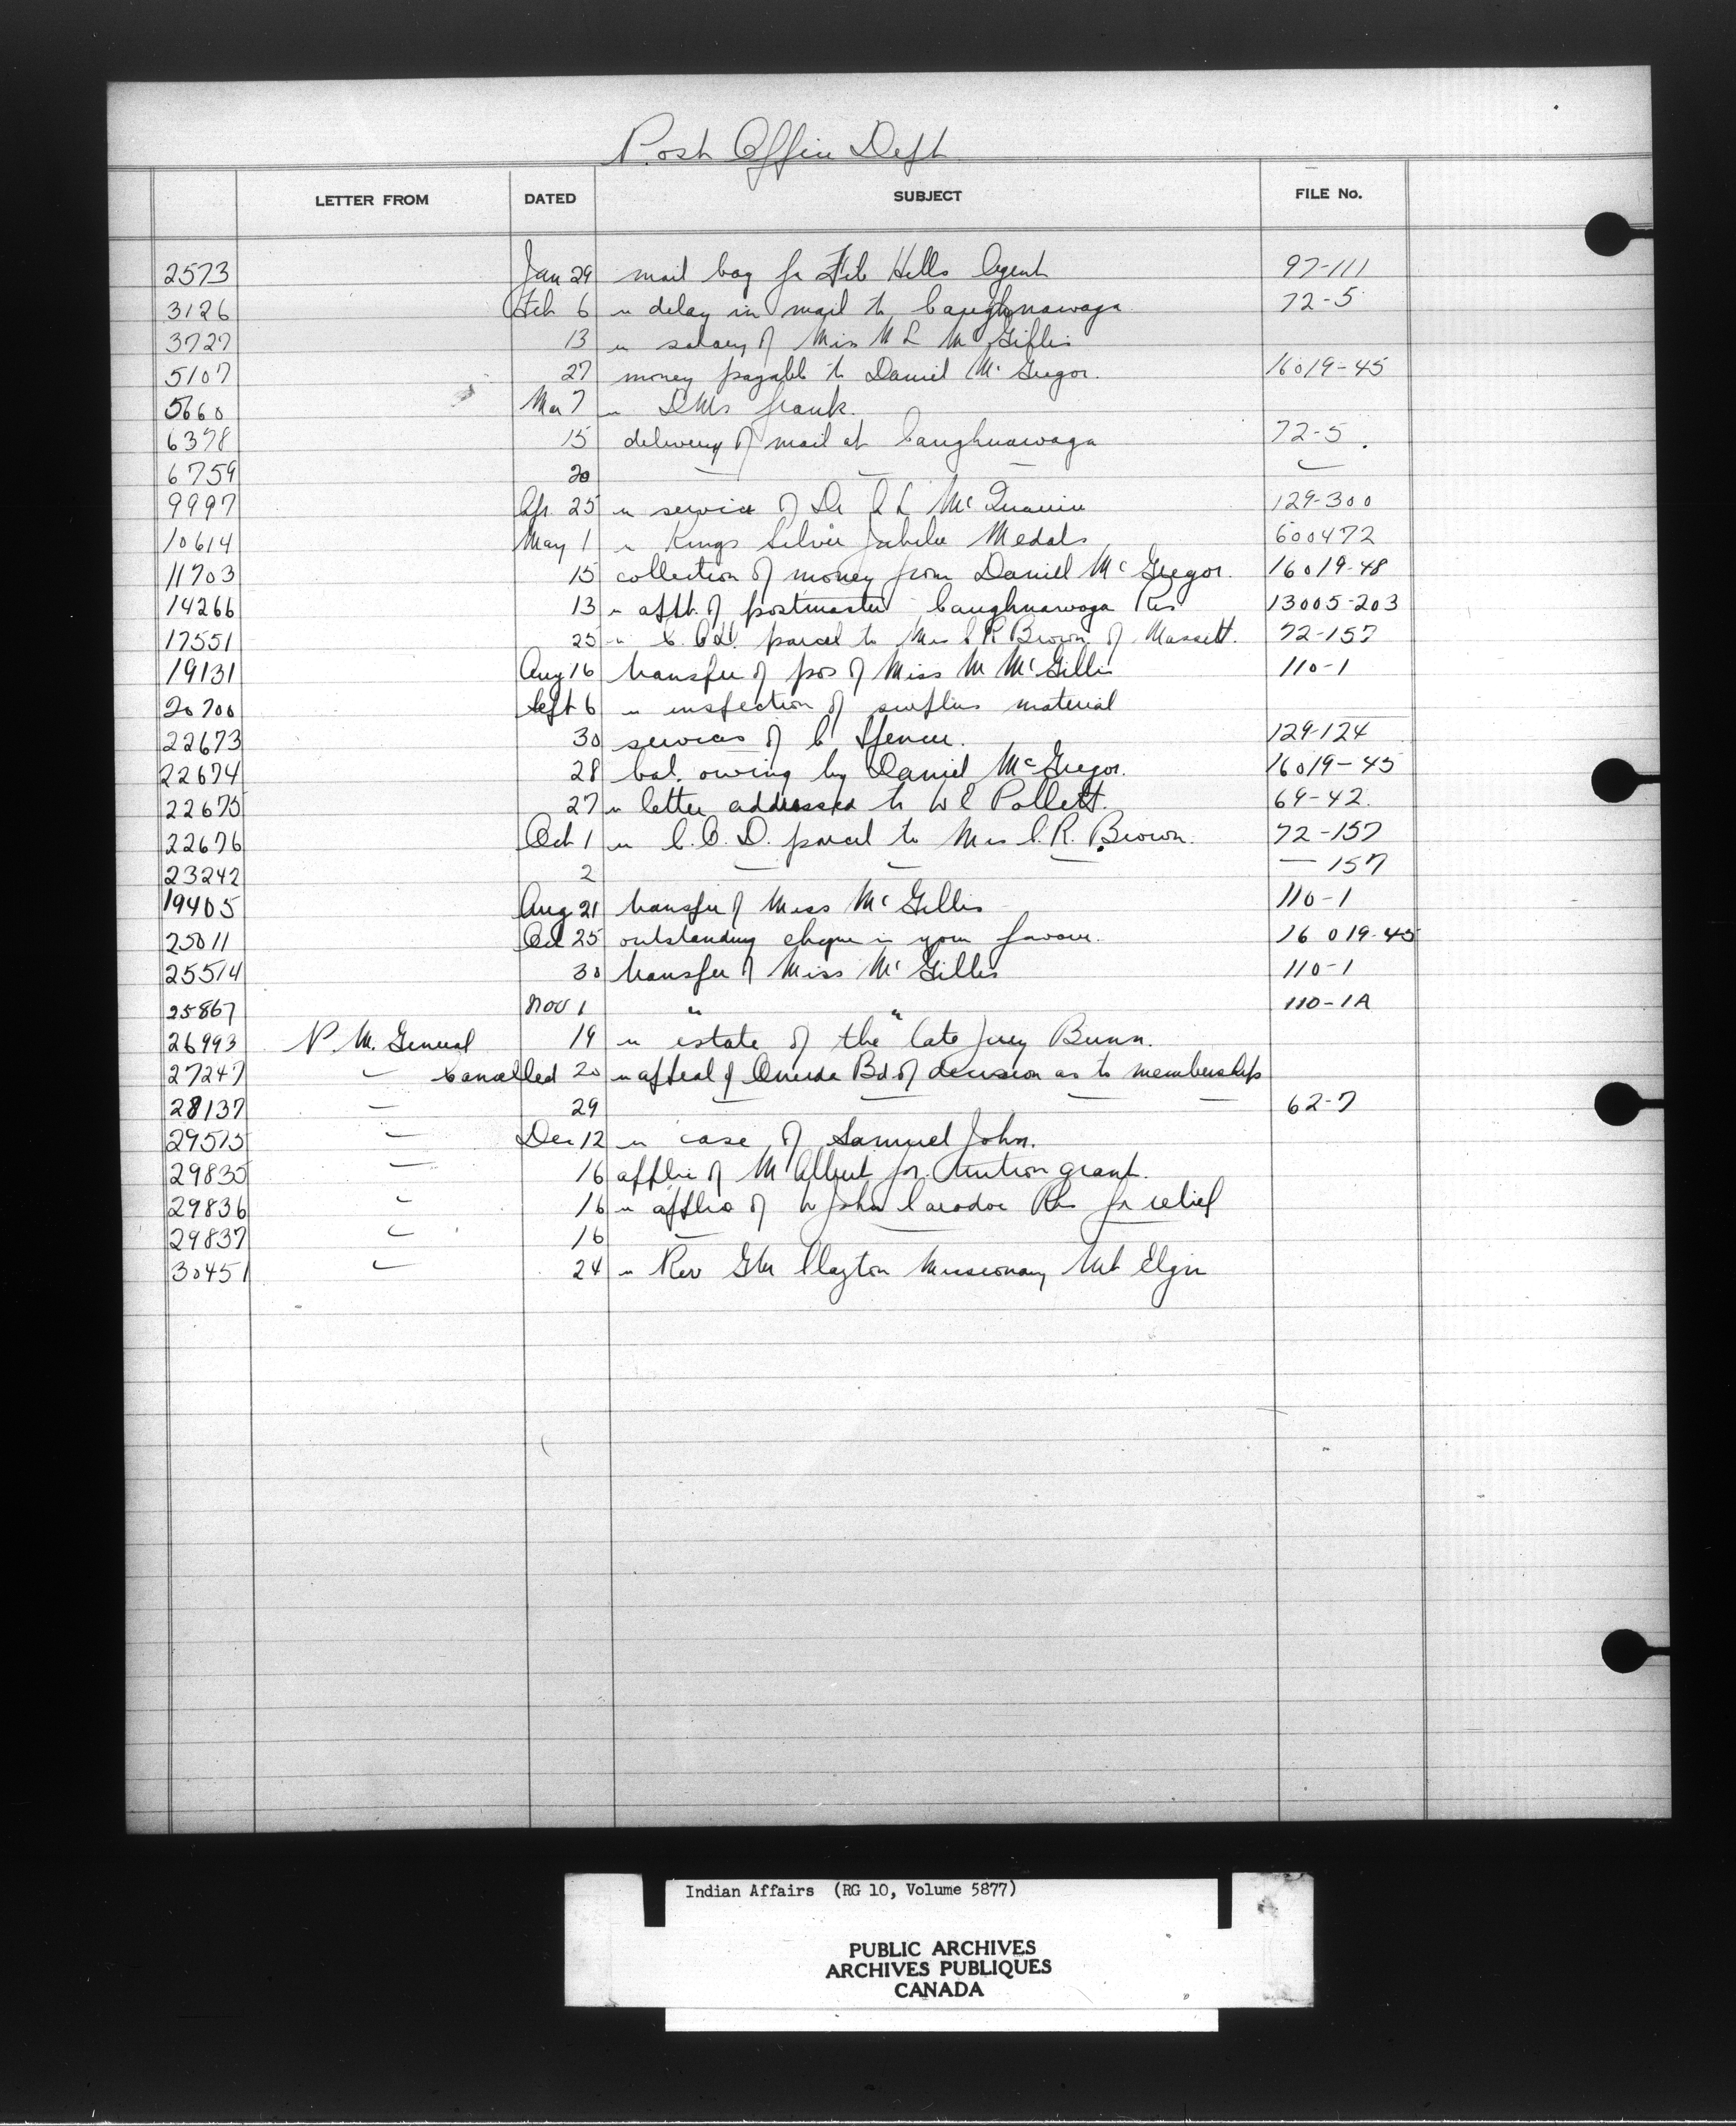 Post Office Dept
LETTER FROM DATED SUBJECT FILE No.
2573 Jan 29 mail bag fr File Hills Agent 97-111
3126 Feb 6 " delay in mail to Caughnawaga 72-5
3727 13 " salary of Miss M L McGillis
5107 27 money payable to Daniel McGregor. 16019-45
5660 Mar 7 " frank.
6378 15 delivery of mail at Caughnawaga 72-5.
6759 20 — — — —
9997 Apr. 25 " service of Dr 129-300
10614 May 1 " Kings Silver Jubilee Medals 600472
11703 15 collection of money from Daniel McGregor. 16019-48
14266 13 " appt. of postmaster Caughnawaga Res 13005-203
17551 25 " C.O.D. parcel to Mrs C R Brown of Massett. 72-157
19131 Aug 16 transfer of pos of Miss M McGillis 110-1
20700 Sept 6 " inspection of surplus material
22673 30 services of C Spencer. 129-124
22674 28 bal. owing by Daniel McGregor. 16019-45
22675 27 " letter addressed to W E Pollett. 69-42.
22676 Oct 1 " C.O.D. parcel to Mrs C.R. Brown. 72-157
23242 2 — — — — 157
19405 Aug 21 transfer of Miss McGillis 110-1
25011 Oct 25 outstanding cheque in your favour. 16019-45
25514 30 transfer of Miss McGillis 110-1
25867 Nov 1 " " 110-1A
26993 P.M. General 19 " estate of the late Bunn.
27247 — Cancelled 20 " appeal of Oneida Bd of decision as to memberships
28137 — 29 — — — — 62-7
29515 — Dec 12 " case of Samuel John.
29835 — 16 applic of M Albert for tuition grant.
29836 — 16 " applic of W John Caradoc Res for relief
29837 — 16 — —
30451 — 24 " Rev GW Clayton Missionary Mt Elgin
Indian Affairs (RG 10, Volume 5877)
PUBLIC ARCHIVES
ARCHIVES PUBLIQUES
CANADA